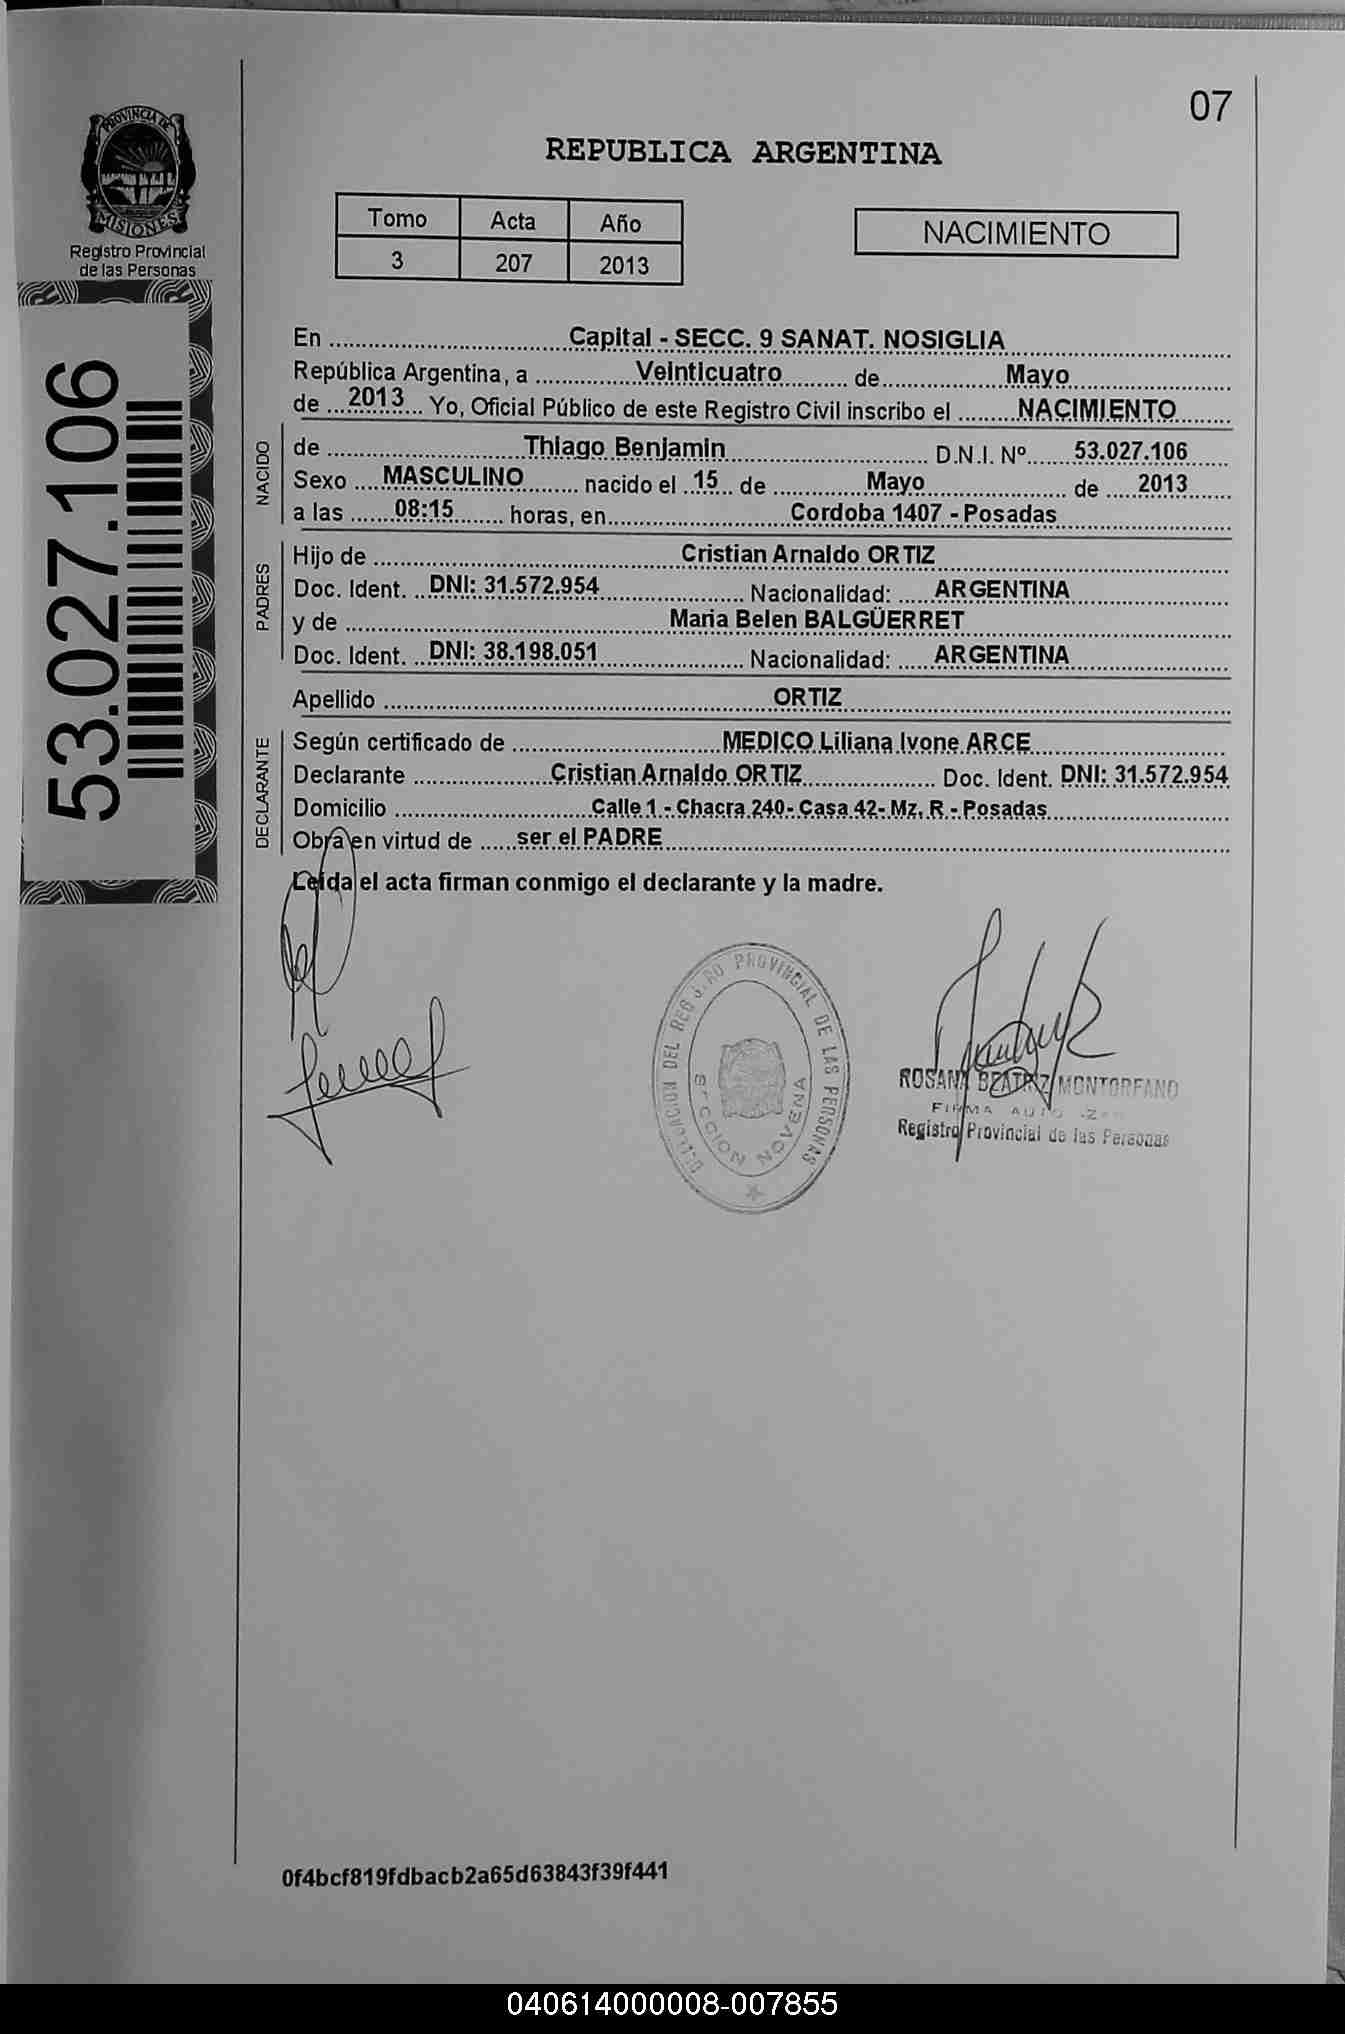 07
PROVINCIA DE
MISIONES
Registro Provincial
de las Personas
REPUBLICA ARGENTINA
Tomo Acta Año
3 207 2013
NACIMIENTO
53.027.106
En Capital - SECC. 9 SANAT. NOSIGLIA
República Argentina, a Veinticuatro de Mayo
de 2013 Yo, Oficial Público de este Registro Civil inscribo el NACIMIENTO
NACIDO
de Thiago Benjamin D.N.I. Nº 53.027.106
Sexo MASCULINO nacido el 15 de Mayo de 2013
a las 08:15 horas, en Cordoba 1407 - Posadas
PADRES
Hijo de Cristian Arnaldo ORTIZ
Doc. Ident. DNI: 31.572.954 Nacionalidad: ARGENTINA
y de Maria Belen BALGÜERRET
Doc. Ident. DNI: 38.198.051 Nacionalidad: ARGENTINA
Apellido ORTIZ
DECLARANTE
Según certificado de MEDICO Liliana Ivone ARCE
Declarante Cristian Arnaldo ORTIZ Doc. Ident. DNI: 31.572.954
Domicilio Calle 1 - Chacra 240- Casa 42- Mz. R - Posadas
Obra en virtud de ser el PADRE
Leída el acta firman conmigo el declarante y la madre.
DEL PROVINCIAL DE LAS PERSONAS
SECCION NOVENA
ROSANA BEATRIZ MONTORFANO
FIRMA
Registro Provincial de las Personas
0f4bcf819fdbacb2a65d63843f39f441
040614000008-007855